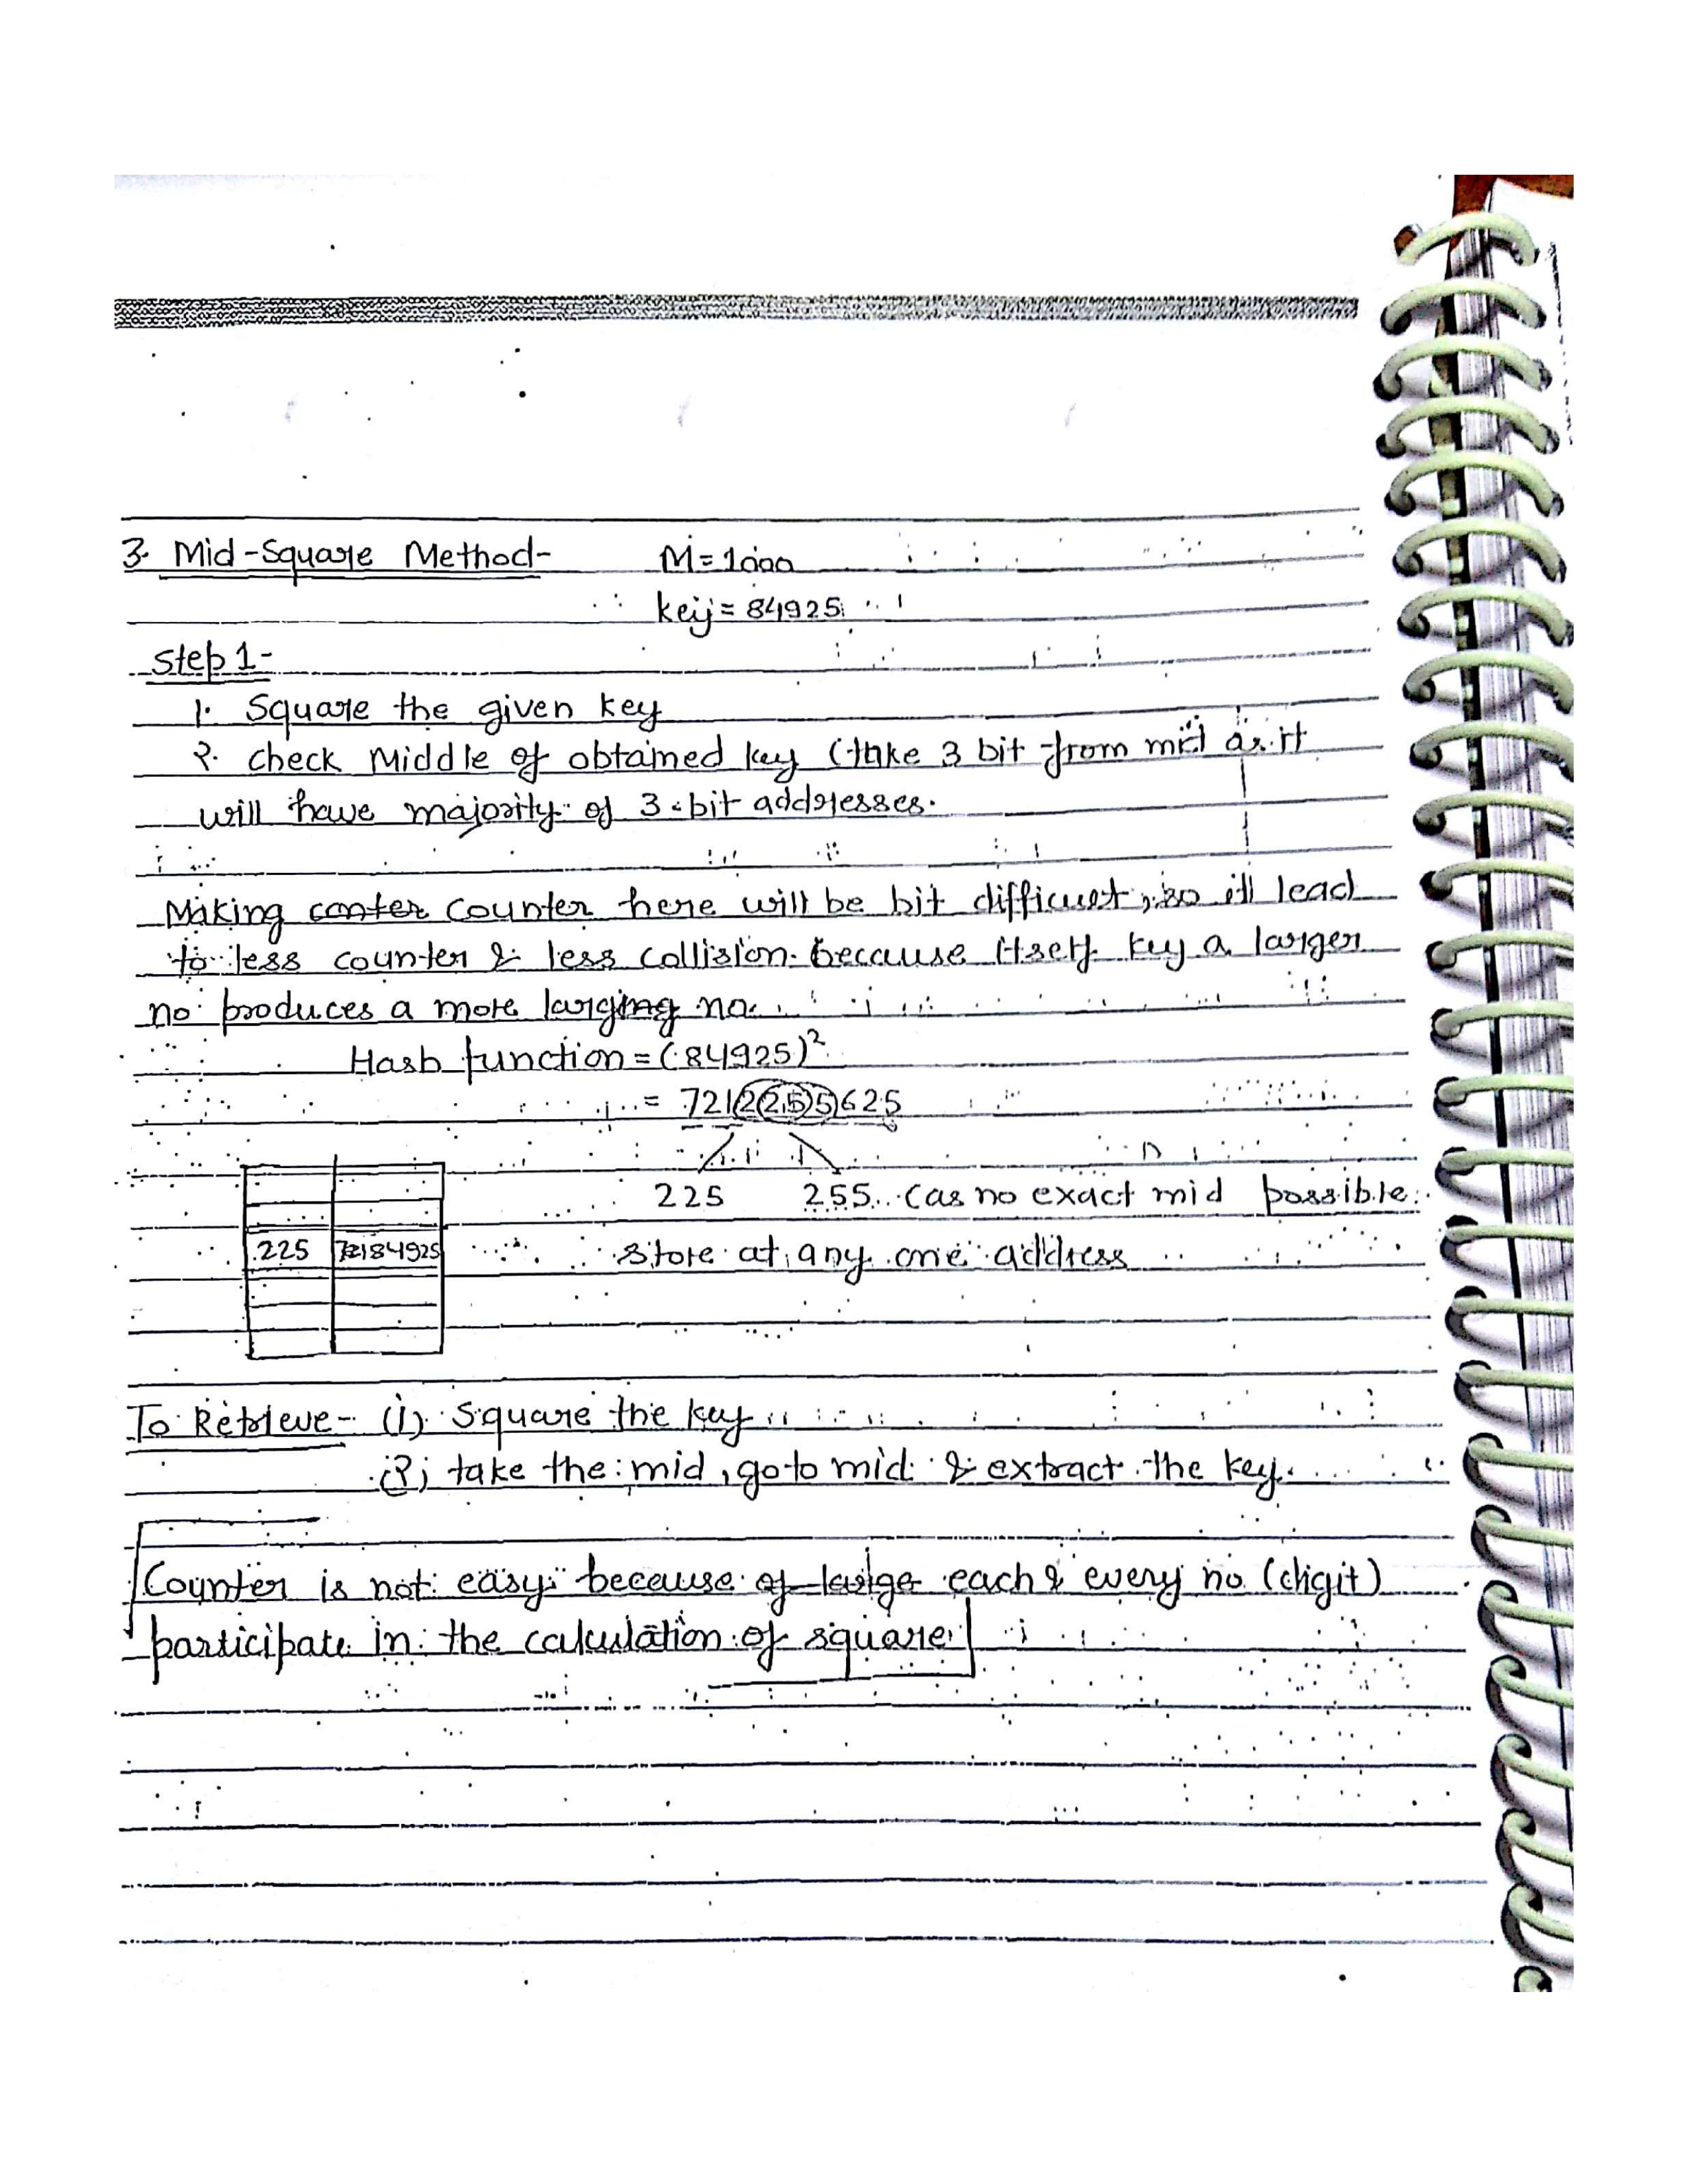 3. Mid-Square Method- M=1000
key= 84925
Step 1-
1. Square the given key
2. check Middle of obtained key (take 3 bit from mid as it
will have majority of 3-bit addresses.
Making conter counter here will be bit difficult, so ill lead
to less counter & less collision. because itself key a larger
no produces a more larging no.
Hash function = (84925)²
= 7212255625
225 255 (as no exact mid possible.
225 84925 store at any one address
To Retrieve- (1) Square the key
(2) take the mid, go to mid & extract the key.
Counter is not easy because of large each & every no (digit)
participate in the calculation of square